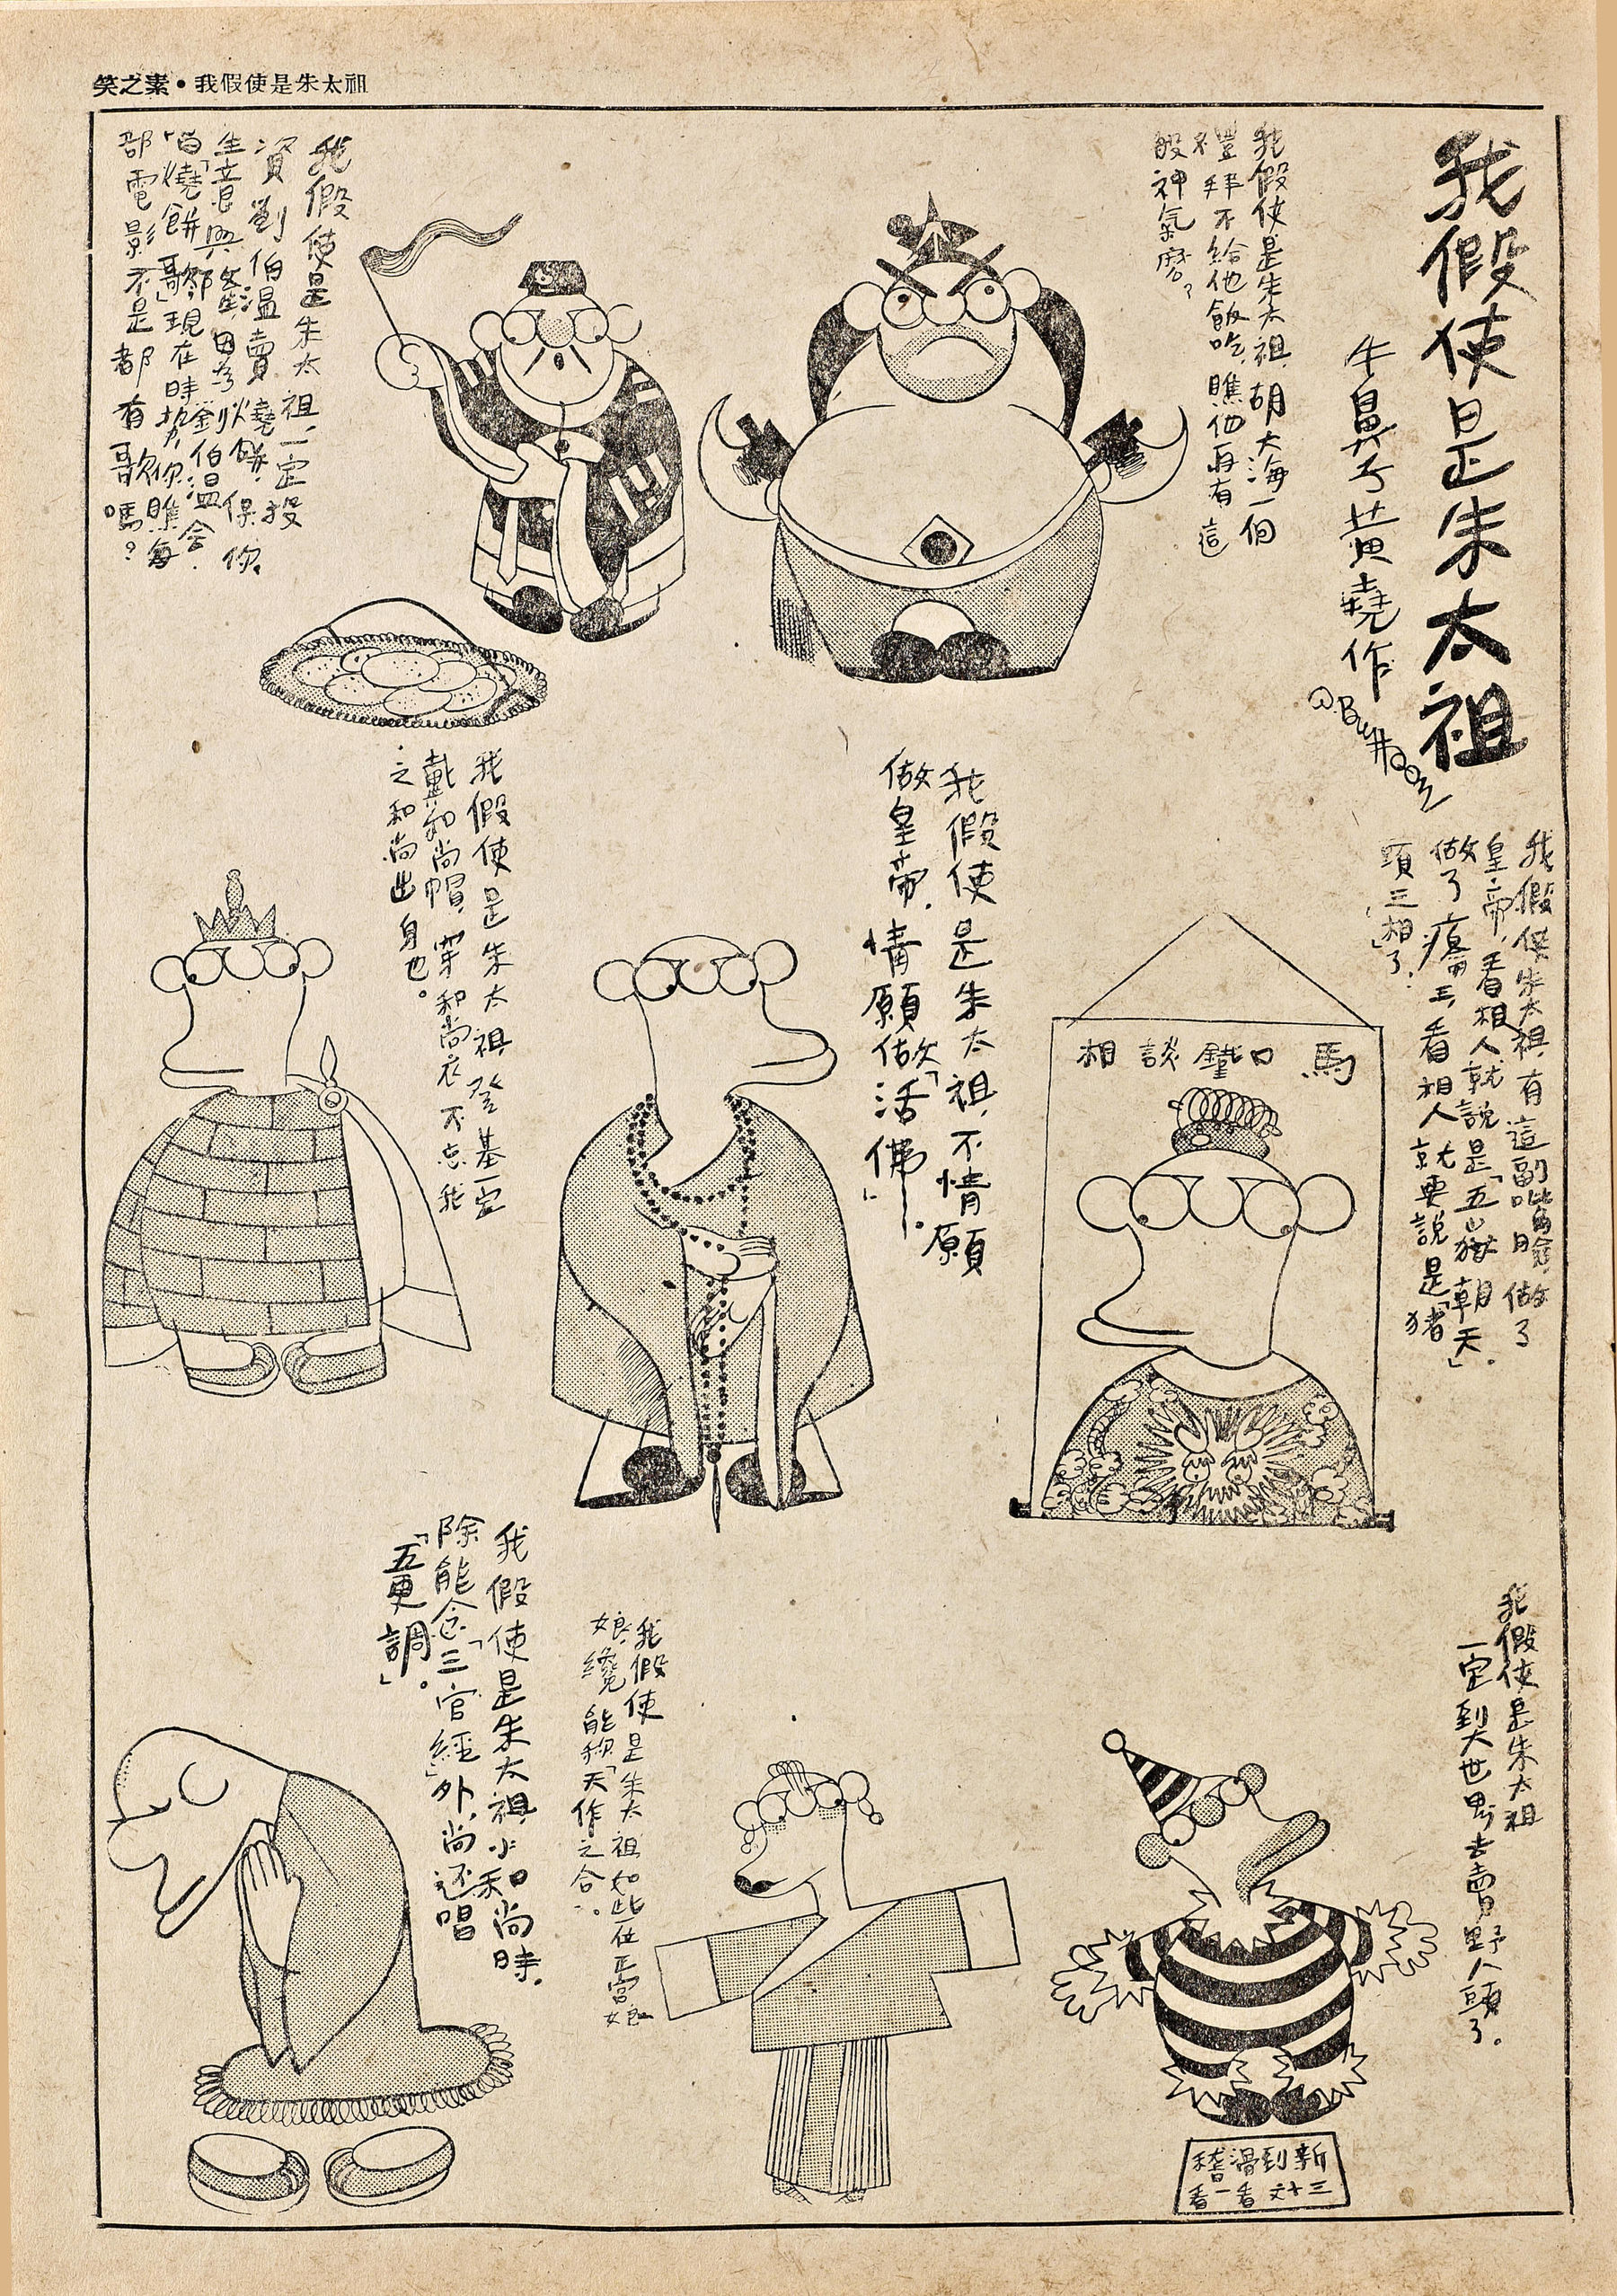 笑之素•我假使是朱太祖
我假使是朱太祖
牛鼻子黃堯作
W.BUFFOON
我假使是朱太祖,胡大海一個
禮拜不給他飯吃,瞧他再有這
般神氣麼?
我假使是朱太祖,一定投
資劉伯温賣燒餅,保你
生意興隆,因為劉伯温会
唱「燒餅歌」現在時勢,你瞧每
部電影不是都有歌嗎?
我假使朱太祖,有這副嘴臉,做了
皇帝,看相人就說是「五嶽朝天」.
做了瘪三,看相人就要說是「猪
頭三相」了.
相談鐵口 馬
我假使是朱太祖,不情願
做皇帝,情願做「活佛」.
我假使是朱太祖,登基一定
戴和尚帽,穿和尚衣不忘我
之和尚出身也。
我假使是朱太祖
一定到大世界去賣野人頭了。
新到滑稽
三十文看一看
我假使是朱太祖如此在正宮娘
娘,纔能称「天作之合」.
我假使是朱太祖小和尚時.
除能念「三官經」外,尚还唱
「五更調」。